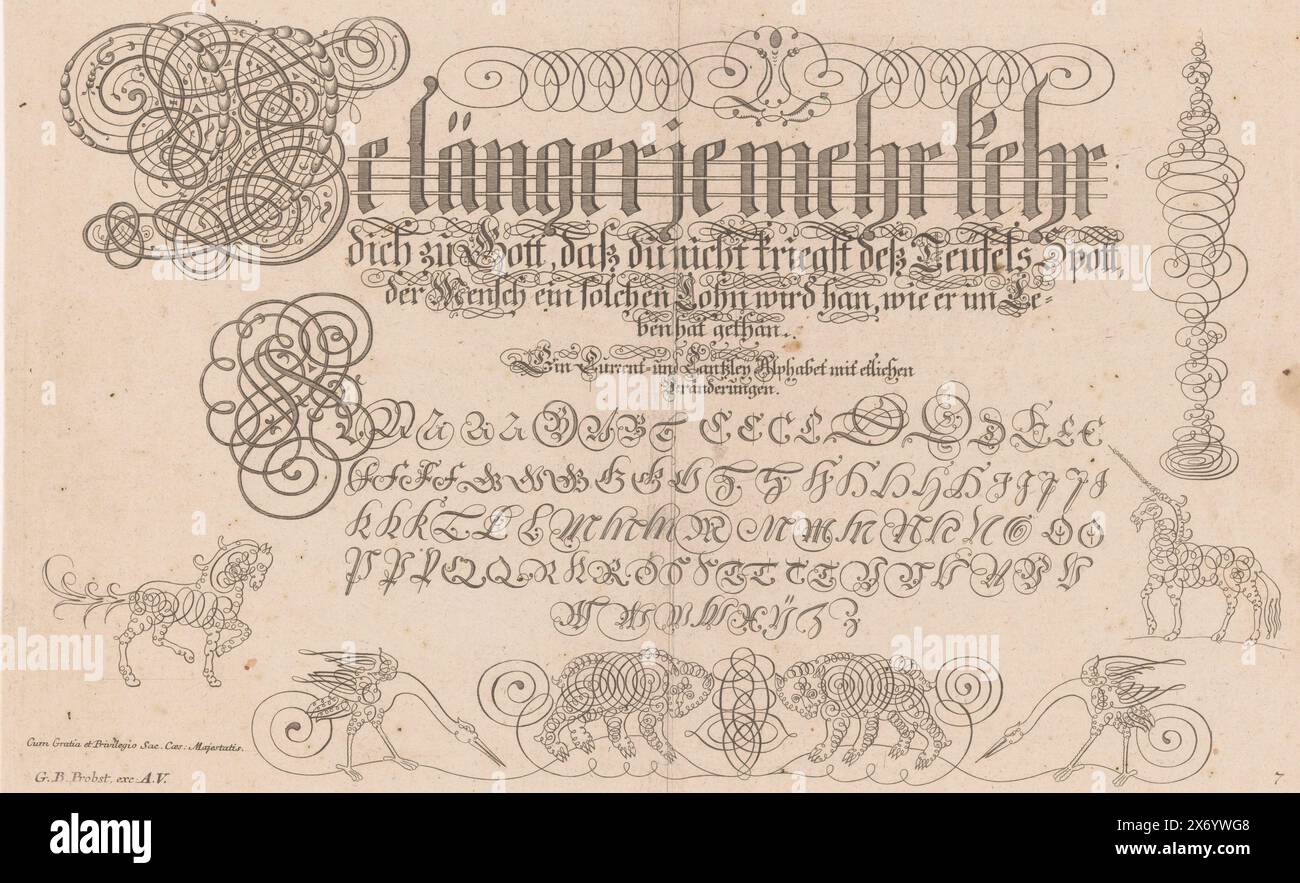 Je länger je mehr kehr
dich zu Gott, daß du nicht kriegst deß Teufels Spott,
der Mensch ein solchen Lohn wird han, wie er im Le=
ben hat gethan.
Ein Current- und Cantzley Alphabet mit etlichen
Veränderungen.
A A A A A B B B C C C C C D D D E E E E
F F F F G G G G G G H H H H H H H I I I I I
K K K K L L L L M M M M M M M N N N N O O O
P P P P Q Q R R R S S S T T T T U U U U V V
W W W W X Y Z Z
Cum Gratia et Privilegio Sac. Cæs: Majestatis.
G. B. Probst, exc. A.V.
7
alamy
Image ID: 2X6YWG8
www.alamy.com